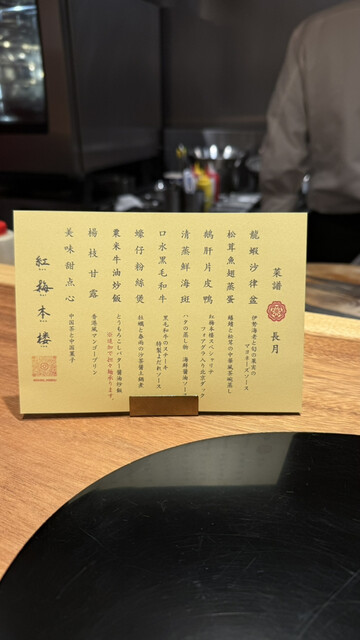 菜譜
長月
龍蝦沙律盆
伊勢海老と旬の果実の
マヨネーズソース
松茸魚翅蒸蛋
鱶鰭と松茸の中華風茶碗蒸し
鵝肝片皮鴨
紅梅本樓スペシャリテ
フォアグラ入り北京ダック
清蒸鮮海斑
ハタの蒸し物 海鮮醤油ソース
口水黒毛和牛
黒毛和牛のステーキ
特製よだれソース
蠔仔粉絲煲
牡蠣と春雨の沙茶醤土鍋煮
粟米牛油炒飯
とうもろこしバター醤油炒飯
楊枝甘露
香港風マンゴープリン
美味甜点心
中国茶と中国菓子
紅梅本樓